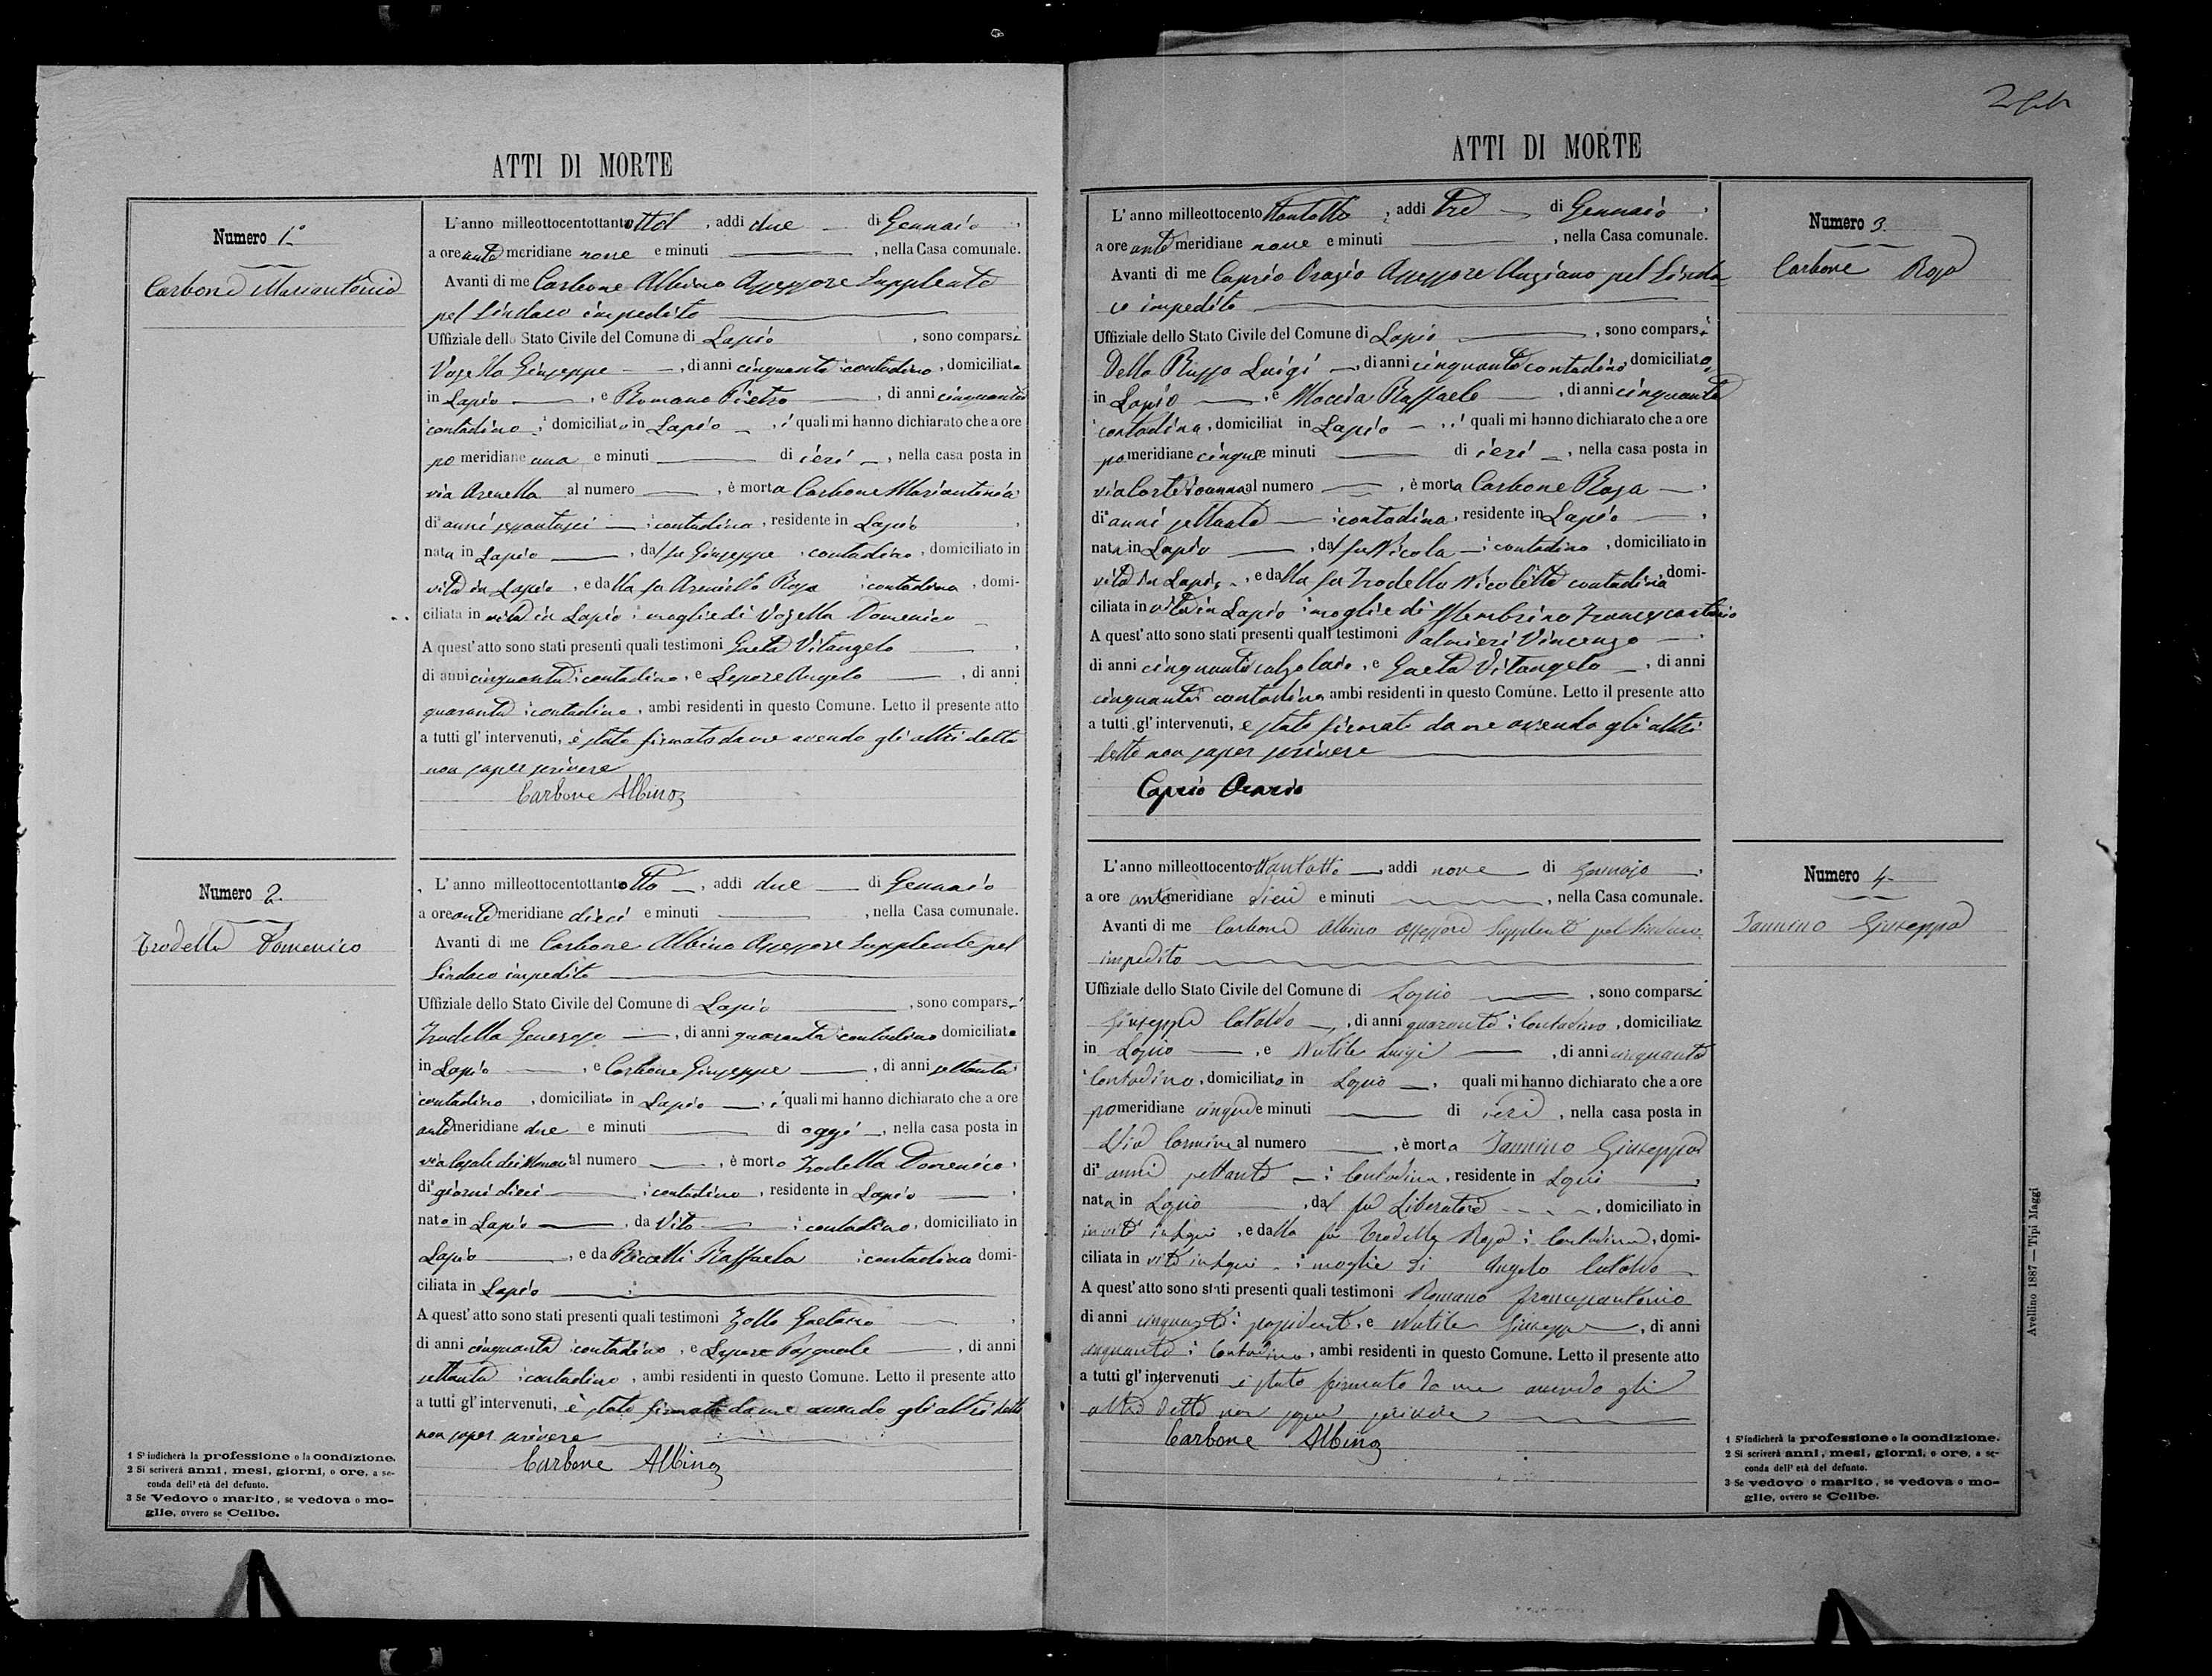 ATTI DI MORTE
Numero 1°
Carbone Mariantonia
L'anno milleottocentottantotto, addi due di Gennaio,
a ore ante meridiane nove e minuti, nella Casa comunale.
Avanti di me Carbone Albino Assessore Supplente
pel Sindaco impedito
Uffiziale dello Stato Civile del Comune di Lapio, sono comparsi
Vozella Giuseppe, di anni cinquanta contadino, domiciliato
in Lapio, e Romano Pietro, di anni cinquanta
contadino, domiciliato in Lapio, i quali mi hanno dichiarato che a ore
po meridiane una e minuti di ieri, nella casa posta in
via Arenella al numero, è morta Carbone Mariantonia
di anni sessantasei contadina, residente in Lapio,
nata in Lapio, dal fu Giuseppe, contadino, domiciliato in
vita in Lapio, e dalla fu Rosa contadina, domi-
ciliata in vita in Lapio moglie di Vozella Domenico
A quest'atto sono stati presenti quali testimoni Gaeta Vitangelo,
di anni cinquanta contadino, e Lepore Angelo, di anni
quaranta contadino, ambi residenti in questo Comune. Letto il presente atto
a tutti gl'intervenuti, è stato firmato da me avendo gli altri detto
non saper scrivere
Carbone Albino
Numero 2.
Trodella Domenico
L'anno milleottocentottantotto, addi due di Gennaio
a ore ante meridiane dieci e minuti, nella Casa comunale.
Avanti di me Carbone Albino Assessore Supplente pel
Sindaco impedito
Uffiziale dello Stato Civile del Comune di Lapio, sono comparsi
Trodella Generoso, di anni quaranta contadino domiciliato
in Lapio, e Carbone Giuseppe, di anni settanta
contadino, domiciliato in Lapio, i quali mi hanno dichiarato che a ore
ante meridiane due e minuti di oggi, nella casa posta in
via Casale dei al numero, è morto Trodella Domenico,
di giorni dieci contadino, residente in Lapio,
nato in Lapio, da Vito contadino, domiciliato in
Lapio, e da Raffaela contadina domi-
ciliata in Lapio
A quest'atto sono stati presenti quali testimoni Zollo Gaetano,
di anni cinquanta contadino, e Lepore Pasquale, di anni
settanta contadino, ambi residenti in questo Comune. Letto il presente atto
a tutti gl'intervenuti, è stato firmato da me avendo gli altri detto
non saper scrivere
Carbone Albino
1 S'indicherà la professione o la condizione.
2 Si scriverà anni, mesi, giorni, o ore, a se-
conda dell'età del defunto.
3 Se Vedovo o marito, se vedova o mo-
glie, ovvero se Celibe.
ATTI DI MORTE
Numero 3.
Carbone Rosa
L'anno milleottocentottantotto, addi tre di Gennaio,
a ore ante meridiane nove e minuti, nella Casa comunale.
Avanti di me Caprio Orazio Assessore Anziano pel Sinda
co impedito
Uffiziale dello Stato Civile del Comune di Lapio, sono comparsi
Della Russo Luigi, di anni cinquanta contadino, domiciliato
in Lapio, e Raffaele, di anni cinquanta
contadino, domiciliat in Lapio, i quali mi hanno dichiarato che a ore
po meridiane cinque e minuti di ieri, nella casa posta in
via al numero, è morta Carbone Rosa,
di anni settanta contadina, residente in Lapio,
nata in Lapio, dal fu Nicola contadino, domiciliato in
vita in Lapio, e dalla fu Trodella Nicoletta contadina domi-
ciliata in vita in Lapio moglie di Membrino Francescantonio
A quest'atto sono stati presenti quali testimoni Palmieri Vincenzo,
di anni cinquanta calzolaio, e Gaeta Vitangelo, di anni
cinquanta contadino ambi residenti in questo Comune. Letto il presente atto
a tutti gl'intervenuti, è stato firmato da me avendo gli altri
detto non saper scrivere
Caprio Orazio
Numero 4.
Iannino Giuseppa
L'anno milleottocentottantotto, addi nove di Gennajo,
a ore antemeridiane dieci e minuti, nella Casa comunale.
Avanti di me Carbone Albino Assessore Supplente pel Sindaco
impedito
Uffiziale dello Stato Civile del Comune di Lapio, sono comparsi
Giuseppe Cataldo, di anni quaranta contadino, domiciliato
in Lapio, e Nutile Luigi, di anni cinquanta
contadino, domiciliato in Lapio, quali mi hanno dichiarato che a ore
pomeridiane cinque e minuti di ieri, nella casa posta in
Via Carmine al numero, è morta Iannino Giuseppa
di anni settanta contadina, residente in Lapio,
nata in Lapio, dal fu Liberatore, domiciliato in
in vita in Lapio, e dalla fu Trodella Rosa contadina, domi-
ciliata in vita in Lapio moglie di Angelo Cataldo
A quest'atto sono stati presenti quali testimoni Romano Francescantonio
di anni cinquanta possidente, e Nutile Giuseppe, di anni
cinquanta contadino, ambi residenti in questo Comune. Letto il presente atto
a tutti gl'intervenuti è stato firmato da me avendo gli
altri detto non saper scrivere
Carbone Albino
1 S'indicherà la professione o la condizione.
2 Si scriverà anni, mesi, giorni, o ore, a se-
conda dell'età del defunto.
3 Se vedovo o marito, se vedova o mo-
glie, ovvero se Celibe.
Avellino 1887 — Tipi Maggi